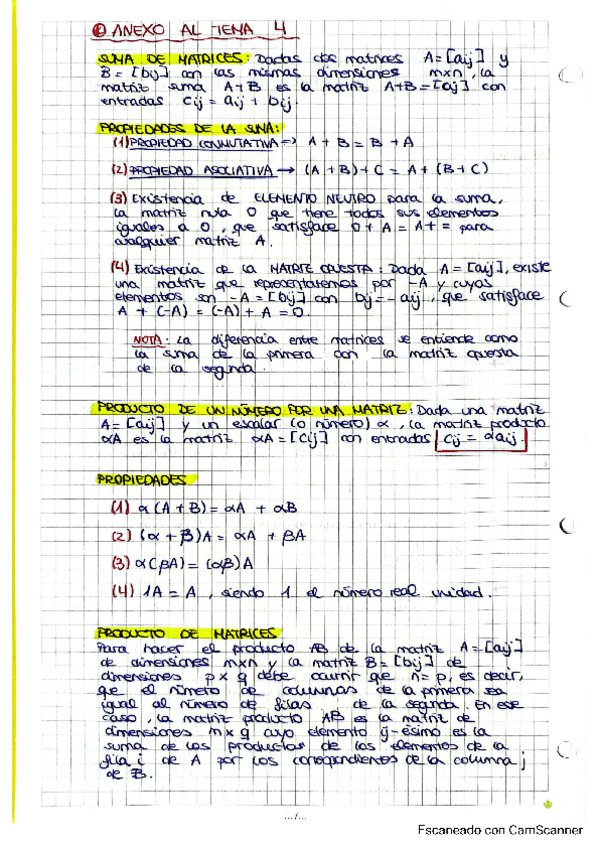 ① ANEXO AL TEMA 4
SUMA DE MATRICES: Dadas dos matrices A=[aij] y
B=[bij] con las mismas dimensiones mxn, la
matriz suma A+B es la matriz A+B=[cij] con
entradas cij = aij + bij.
PROPIEDADES DE LA SUMA:
(1) PROPIEDAD CONMUTATIVA => A + B = B + A
(2) PROPIEDAD ASOCIATIVA → (A + B) + C = A + (B + C)
(3) Existencia de ELEMENTO NEUTRO para la suma,
la matriz nula O que tiene todos sus elementos
iguales a 0, que satisface 0 + A = A + = para
cualquier matriz A.
(4) Existencia de la MATRIZ OPUESTA: Dada A = [aij], existe
una matriz que representaremos por -A y cuyos
elementos son -A = [bij] con bij = - aij, que satisface
A + (-A) = (-A) + A = 0.
NOTA: La diferencia entre matrices se entiende como
la suma de la primera con la matriz opuesta
de la segunda.
PRODUCTO DE UN NÚMERO POR UNA MATRIZ: Dada una matriz
A=[aij] y un escalar (o número) α, la matriz producto
αA es la matriz αA=[cij] con entradas cij = αaij.
PROPIEDADES
(1) α (A + B) = αA + αB
(2) (α + β)A = αA + βA
(3) α(βA) = (αβ)A
(4) 1A = A, siendo 1 el número real unidad.
PRODUCTO DE MATRICES
Para hacer el producto AB de la matriz A=[aij]
de dimensiones mxn y la matriz B=[bij] de
dimensiones p x q debe ocurrir que n= p, es decir,
que el número de columnas de la primera sea
igual al número de filas de la segunda. En ese
caso, la matriz producto AB es la matriz de
dimensiones m x q cuyo elemento ij-ésimo es la
suma de los productos de los elementos de la
fila i de A por los correspondientes de la columna j
de B.
.../...
Escaneado con CamScanner